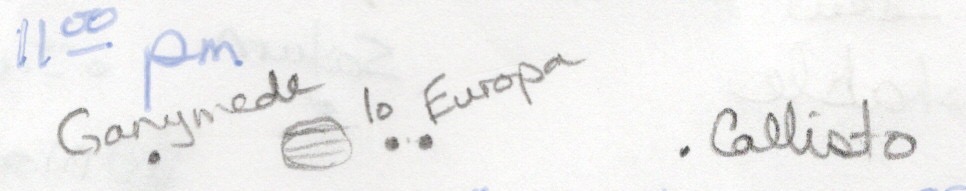 11:00 pm
Ganymede Io Europa
Callisto